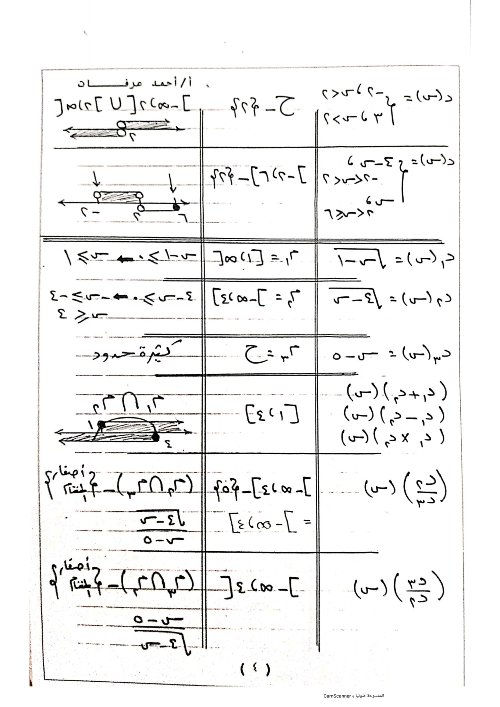 أ/أحمد عرفات
د(س) = { -٢ ، س < ٢
٣ ، س > ٢
ح - {٢}
]-∞ ، ٢[ ∪ ]٢ ، ∞[
٢
د(س) = { ٤ - س ،
-٢ < س < ٢
س ،
٢ < س ≤ ٦
]-٢ ، ٦] - {٢}
-٢ ٢ ٦
د١(س) = √(س - ١)
م١ = [١ ، ∞[
س - ١ ≥ ٠ ← س ≥ ١
د٢(س) = √(٤ - س)
م٢ = ]-∞ ، ٤]
٤ - س ≥ ٠ ← -س ≥ -٤
س ≤ ٤
د٣(س) = س - ٥
م٣ = ح
كثيرة حدود
(د١ + د٢)(س)
(د١ - د٢)(س)
(د١ × د٢)(س)
[١ ، ٤]
م١ ∩ م٢
١ ٤
(د٢/د٣)(س)
]-∞ ، ٤] - {٥}
= ]-∞ ، ٤]
(م٢ ∩ م٣) - {أصفار المقام}
√(٤ - س) / (س - ٥)
(د٣/د٢)(س)
]-∞ ، ٤[
(م٣ ∩ م٢) - {أصفار المقام}
(س - ٥) / √(٤ - س)
(٤)
الممسوحة ضوئيا بـ CamScanner